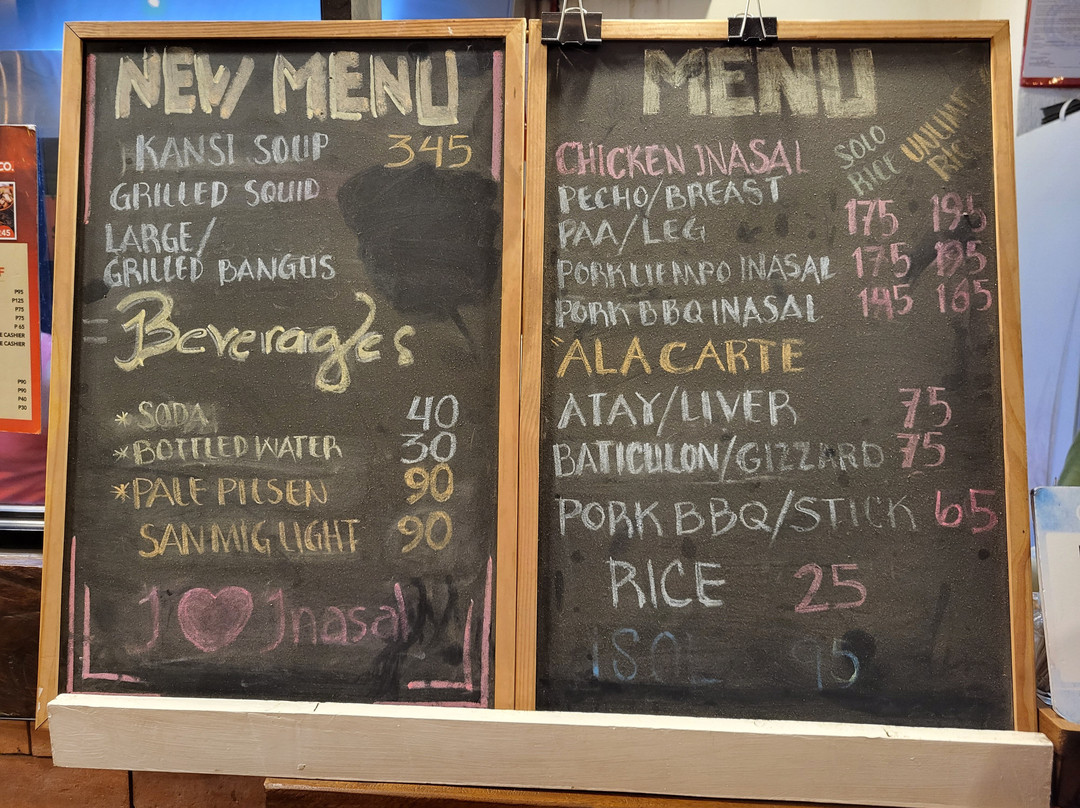 NEW MENU
KANSI SOUP 345
GRILLED SQUID
LARGE/
GRILLED BANGUS
Beverages
* SODA 40
* BOTTLED WATER 30
* PALE PILSEN 90
SAN MIG LIGHT 90
I ♥ Inasal
MENU
SOLO RICE
UNLIMI RIC
CHICKEN INASAL
PECHO/BREAST
175 195
PAA/LEG
PORK LIEMPO INASAL 175 195
PORK BBQ INASAL 145 165
"ALA CARTE
ATAY/LIVER 75
BATICULON/GIZZARD 75
PORK BBQ/STICK 65
RICE 25
ISOL 95
CO.
P95
P125
P75
P75
P 65
E CASHIER
E CASHIER
P90
P90
P40
P30